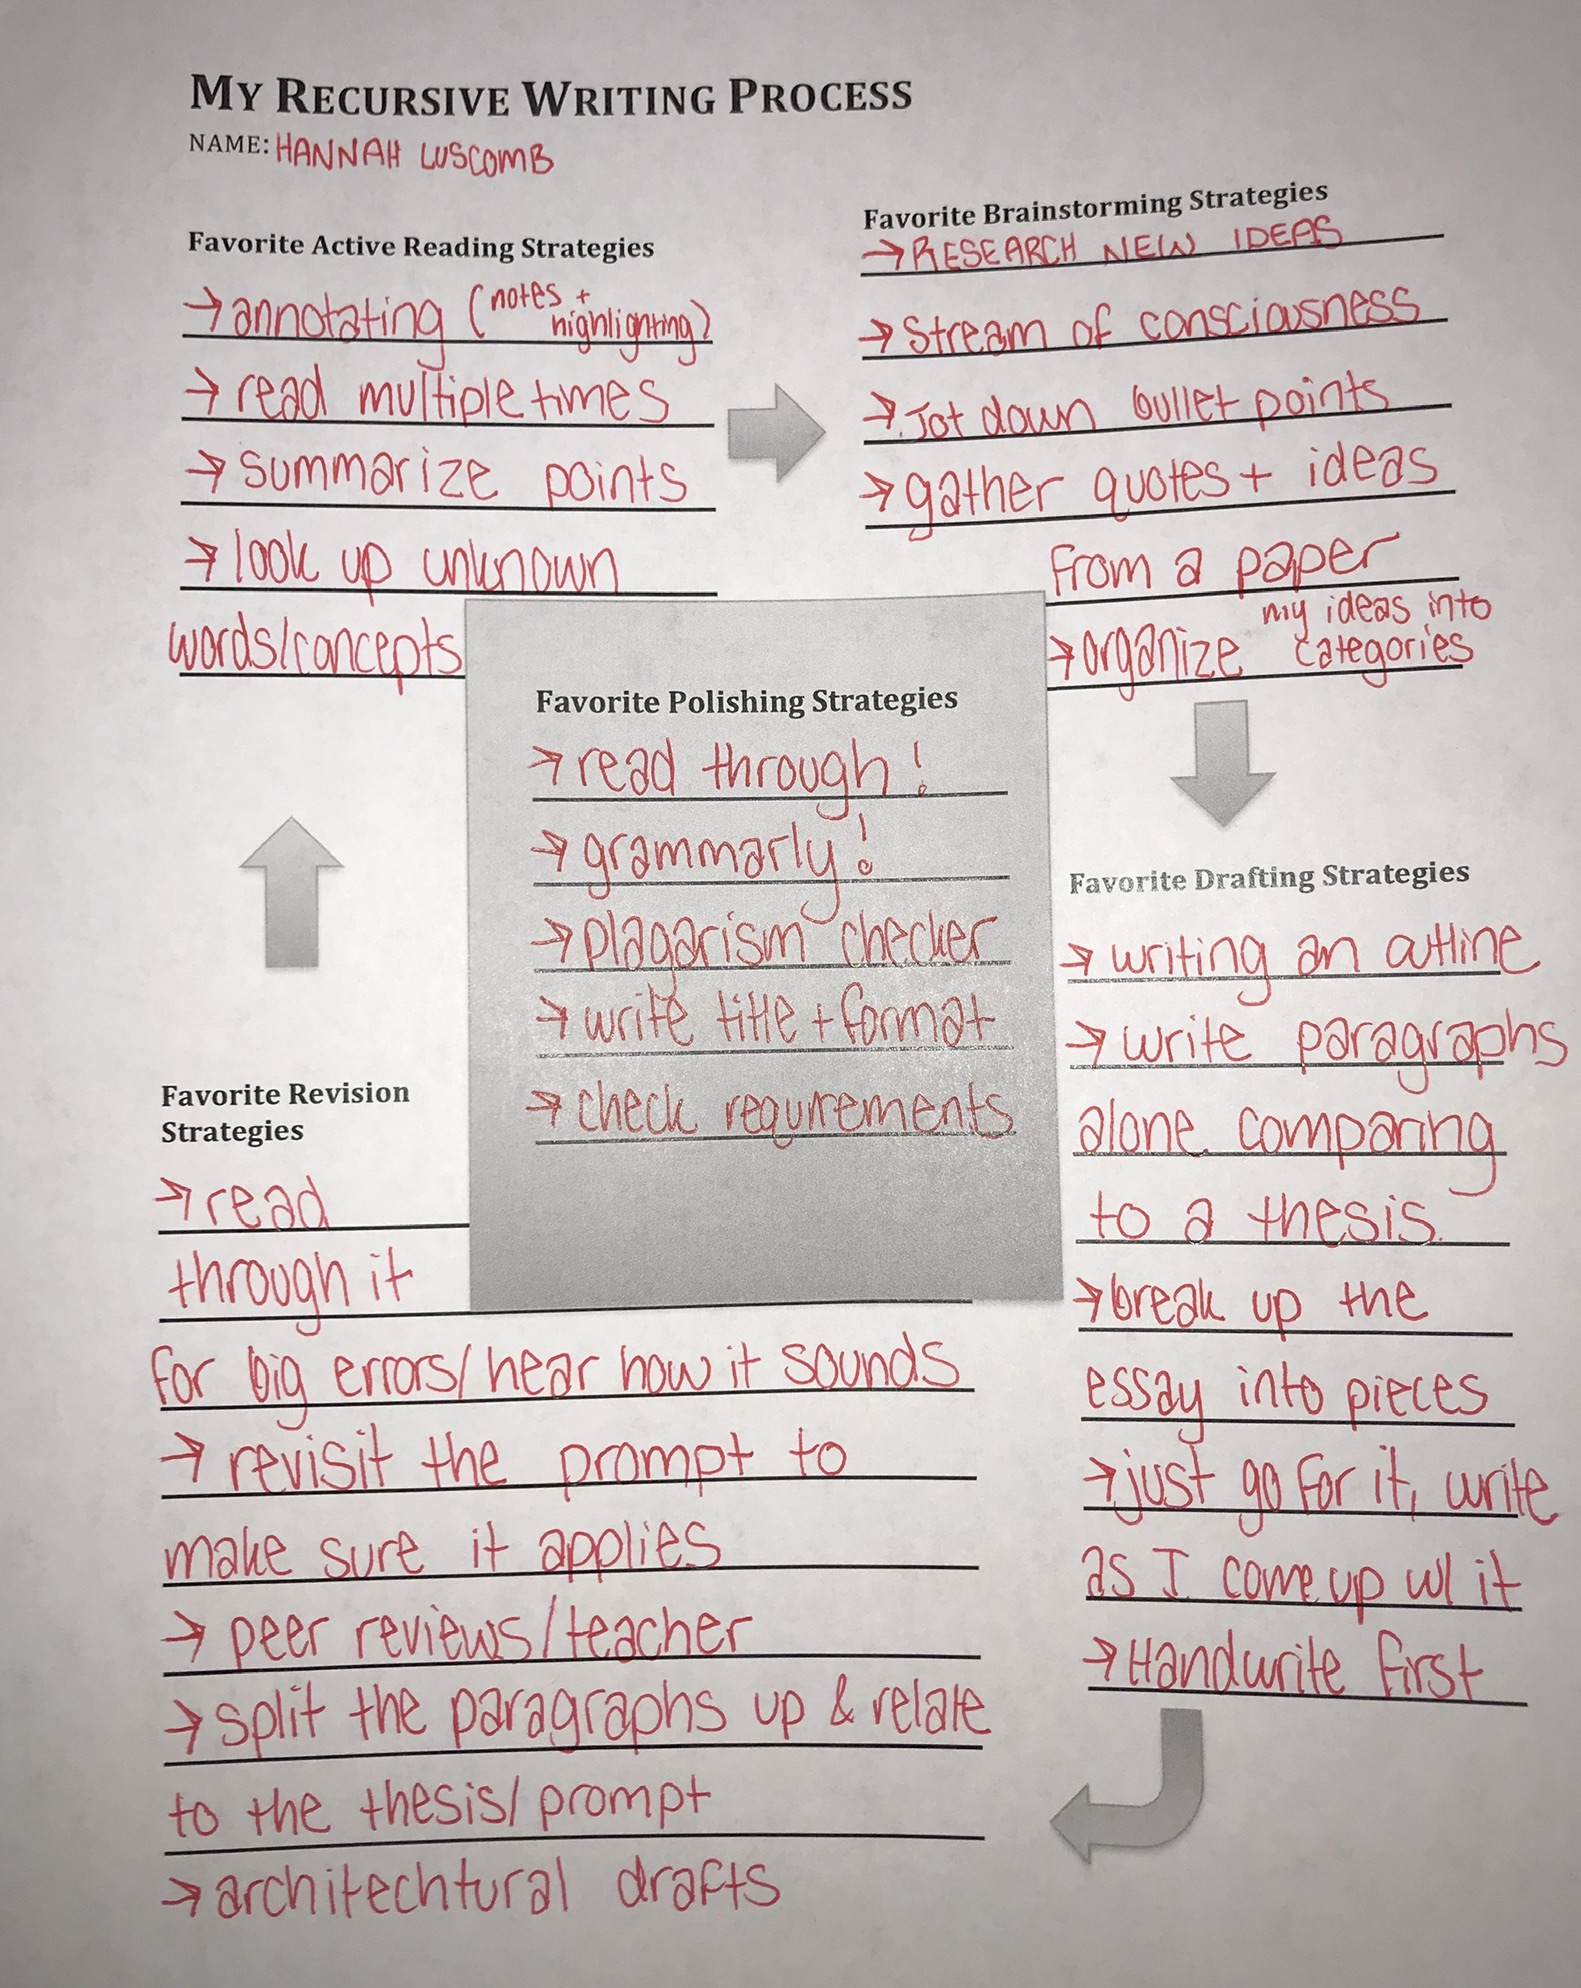 MY RECURSIVE WRITING PROCESS
NAME: HANNAH LUSCOMB
Favorite Active Reading Strategies
→ annotating (notes + highlighting)
→ read multiple times
→ summarize points
→ look up unknown
words/concepts
Favorite Brainstorming Strategies
→ RESEARCH NEW IDEAS
→ Stream of consciousness
→ Jot down bullet points
→ gather quotes + ideas
from a paper
→ organize my ideas into categories
Favorite Drafting Strategies
→ writing an outline
→ write paragraphs
alone comparing
to a thesis.
→ break up the
essay into pieces
→ just go for it, write
as I come up w/ it
→ Handwrite first
Favorite Revision
Strategies
→ read
through it
for big errors/hear how it sounds
→ revisit the prompt to
make sure it applies
→ peer reviews/teacher
→ split the paragraphs up & relate
to the thesis/prompt
→ architechtural drafts
Favorite Polishing Strategies
→ read through!
→ grammarly!
→ plagarism checker
→ write title + format
→ check requirements